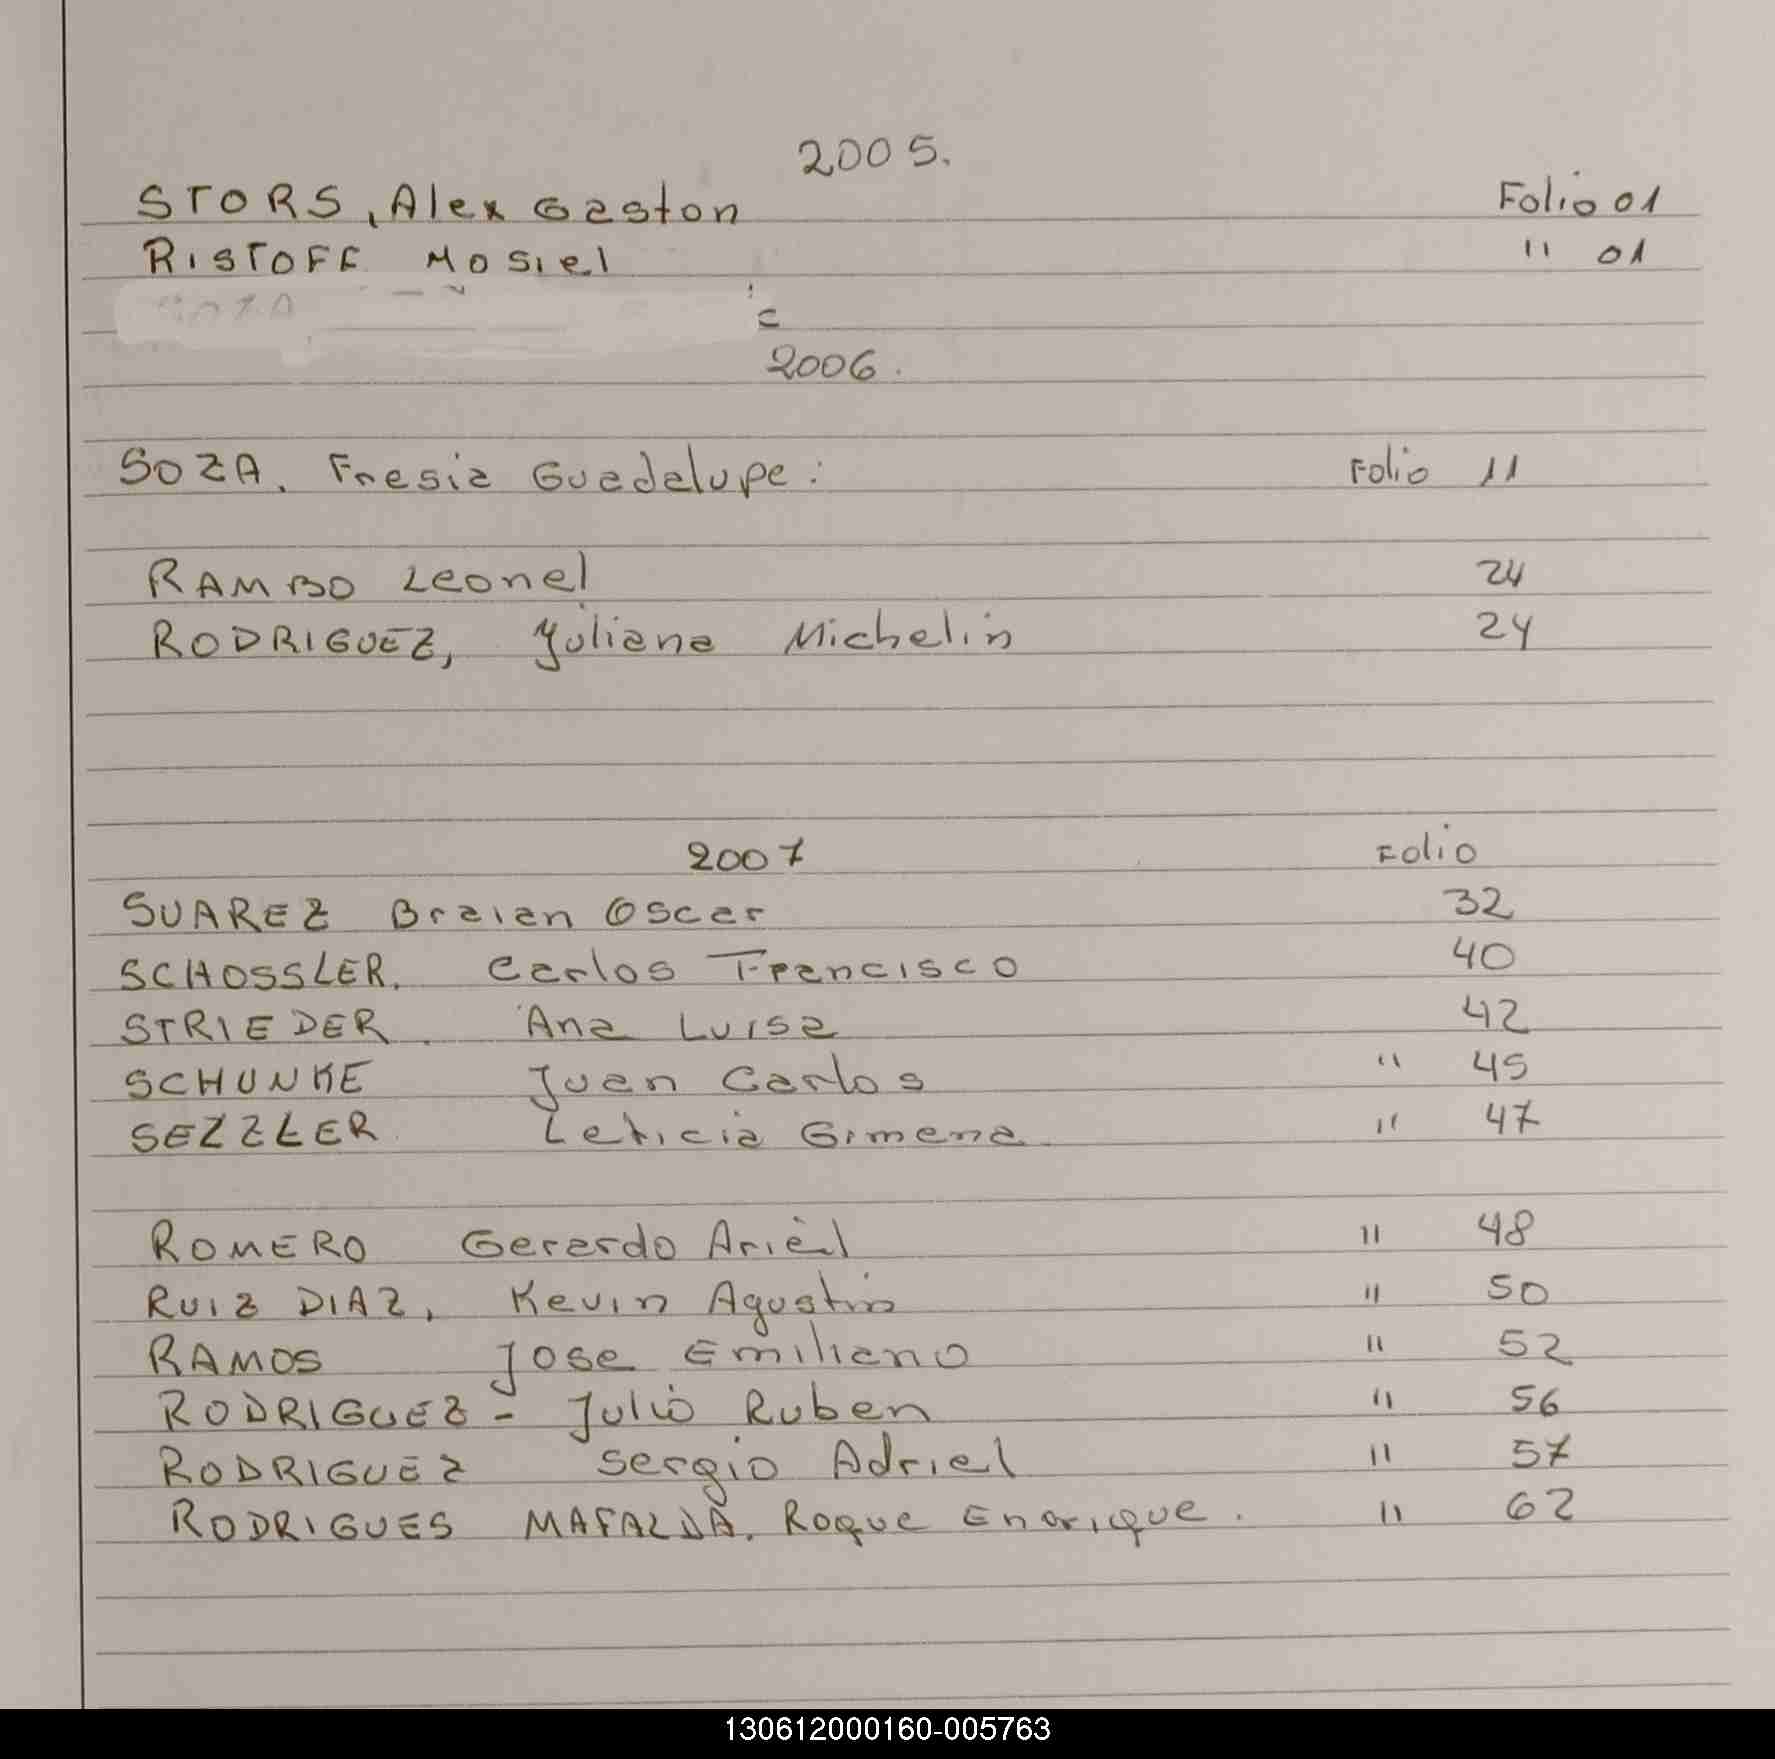 2005.
STORS, Alex Gaston Folio 01
RISTOFF Mosiel " 01
SOZA
2006.
SOZA. Fresia Guadalupe: Folio 11
RAMBO Leonel 24
RODRIGUEZ, Yuliana Michelin 24
2007 Folio
SUAREZ Braian Oscar 32
SCHOSSLER. Carlos Francisco 40
STRIEDER. Ana Luisa 42
SCHUNKE Juan Carlos " 45
SEZZLER Leticia Gimena " 47
ROMERO Gerardo Ariel " 48
RUIZ DIAZ, Kevin Agustin " 50
RAMOS Jose Emiliano " 52
RODRIGUEZ - Julio Ruben " 56
RODRIGUEZ Sergio Adriel " 57
RODRIGUES MAFALDA. Roque Enorique. " 62
130612000160-005763